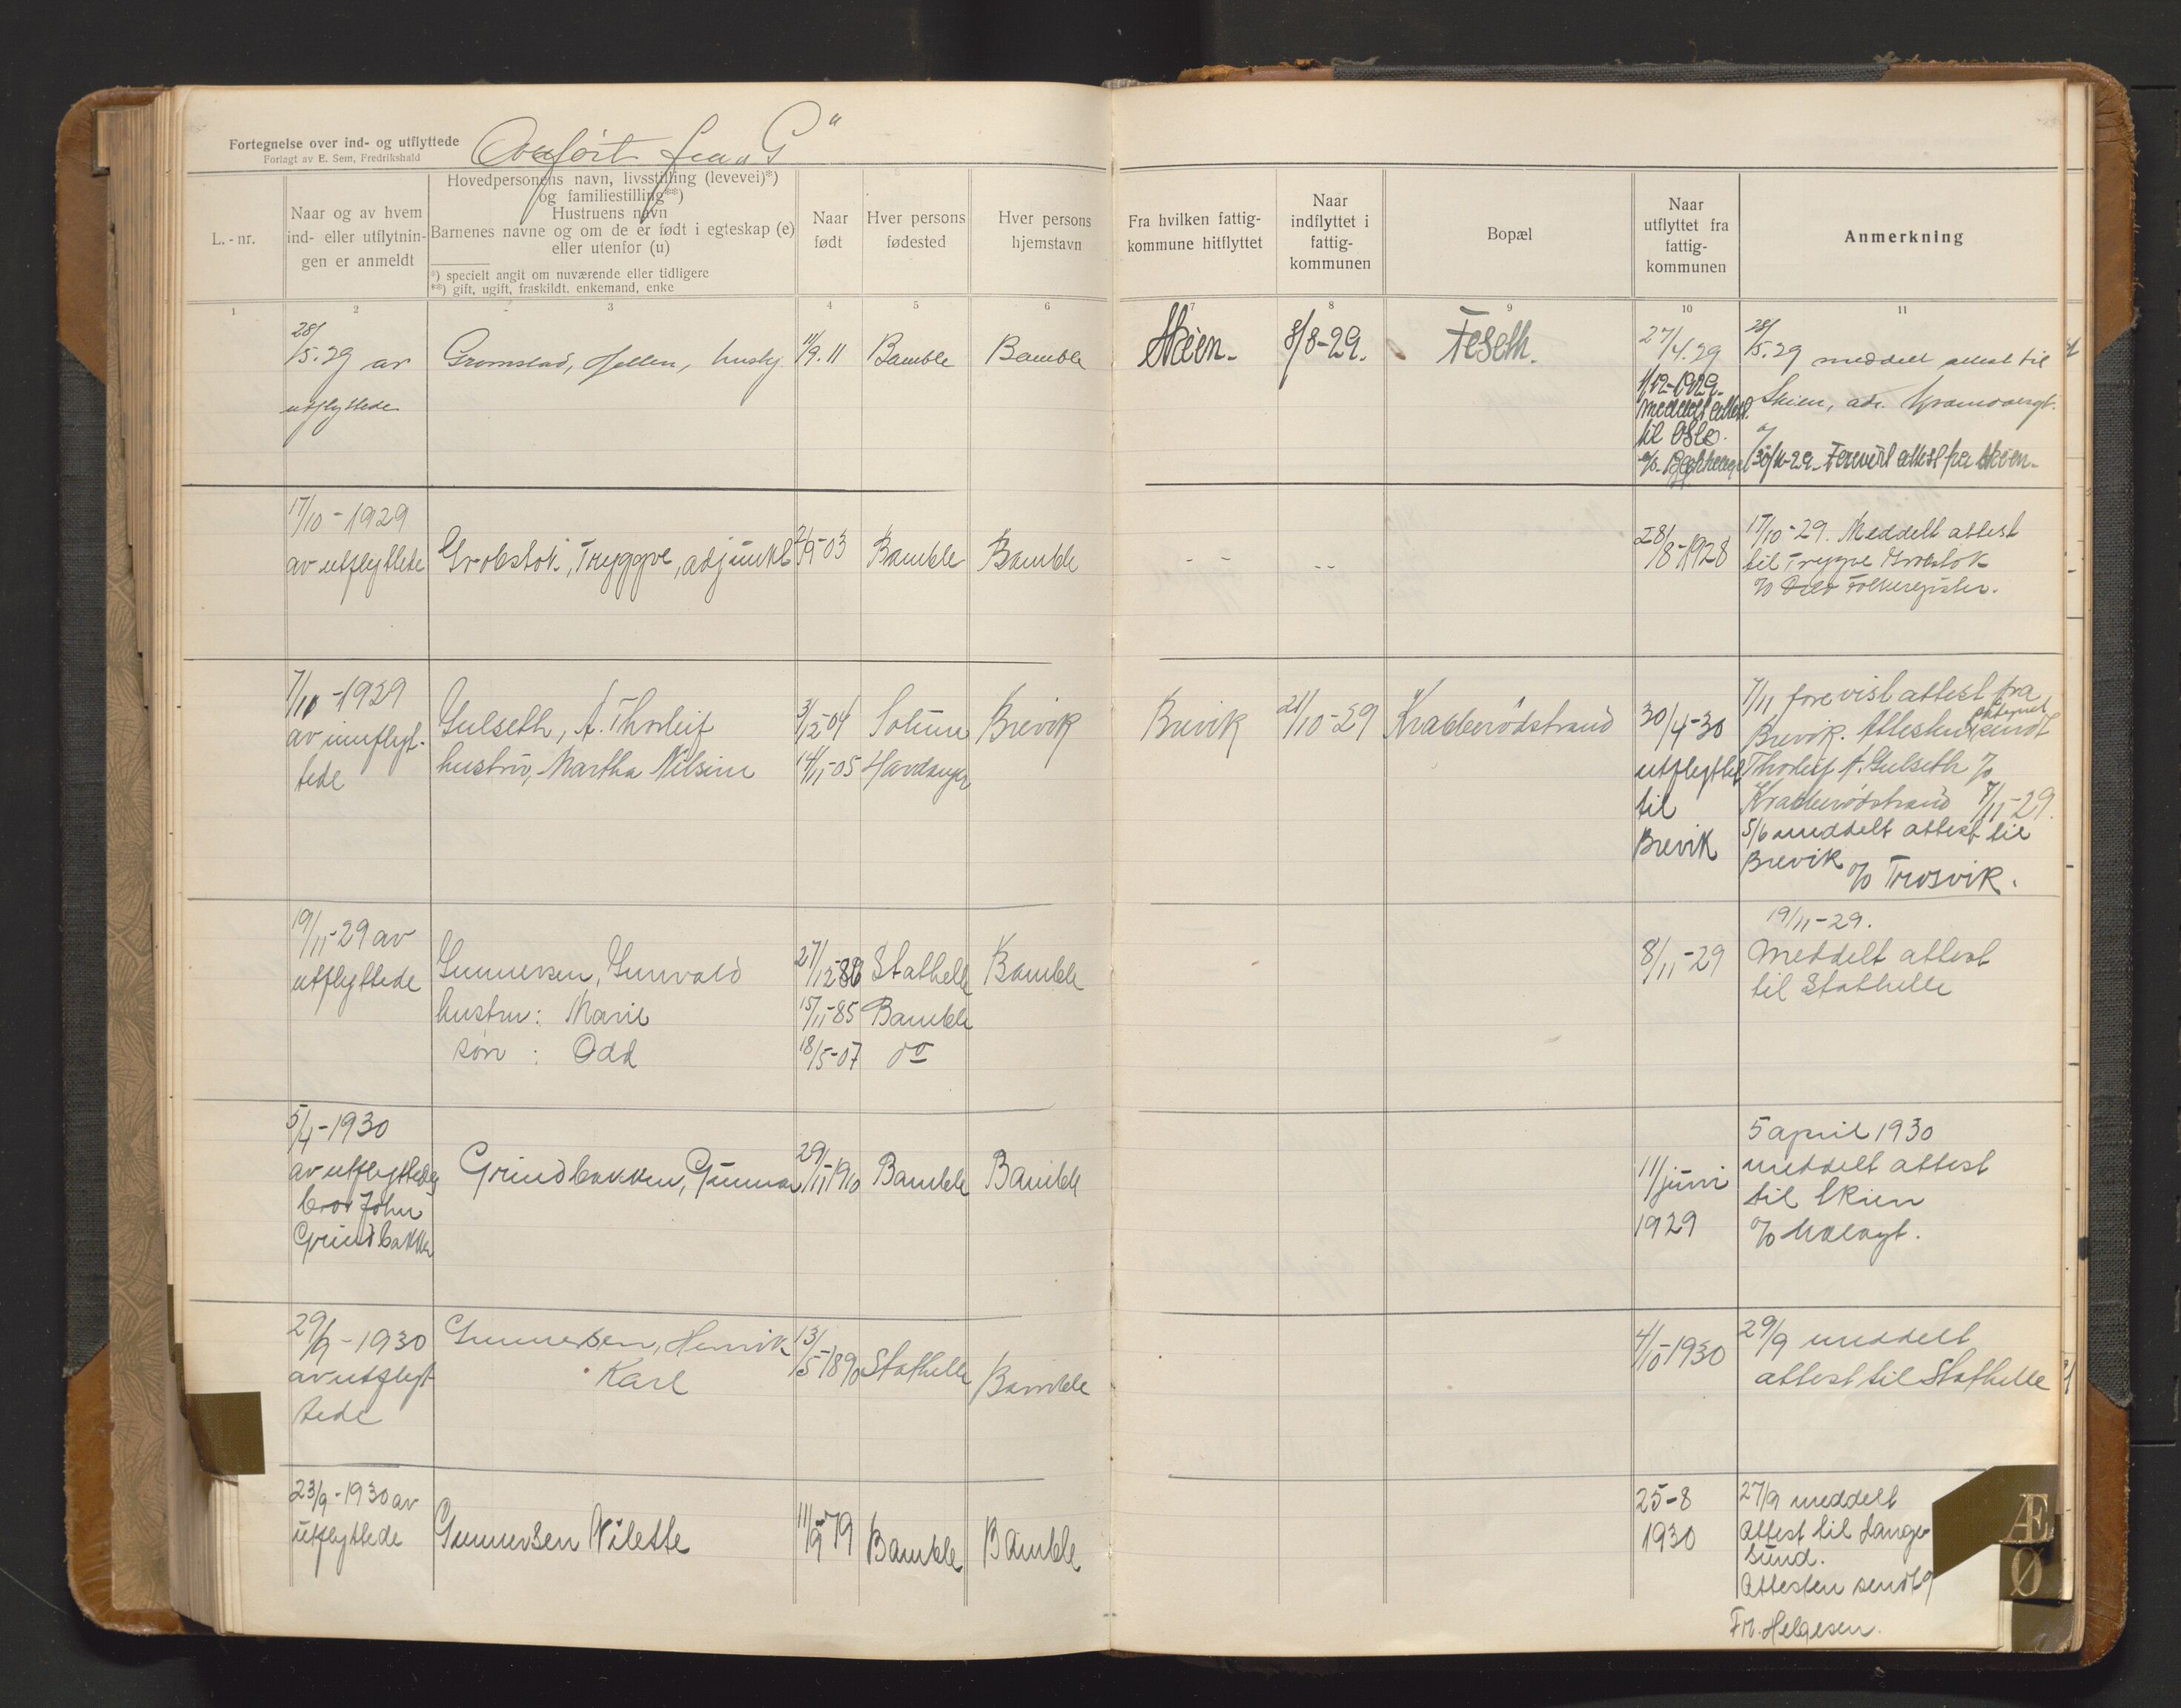 Fortegnelse over ind- og utflyttede
Forlagt av E. Sem, Fredrikshald
Overført fra "G"
L.-nr.
Naar og av hvem
ind- eller utflytnin-
gen er anmeldt
Hovedpersonens navn, livsstilling (levevei)*)
og familiestilling**)
Hustruens navn
Barnenes navne og om de er født i egteskap (e)
eller utenfor (u)
*) specielt angit om nuværende eller tidligere
**) gift, ugift, fraskildt, enkemand, enke
Naar
født
Hver persons
fødested
Hver persons
hjemstavn
Fra hvilken fattig-
kommune hitflyttet
Naar
indflyttet i
fattig-
kommunen
Bopæl
Naar
utflyttet fra
fattig-
kommunen
Anmerkning
1 2 3 4 5 6 7 8 9 10 11
28/5.29 av
utflyttede
Gromstad, Hellen, hushj.
11/9.11
Bamble
Bamble
Skien.
8/8-29.
Feseth.
27/4.29
1/12-1929.
meddelt attest
til Oslo.
28/5.29 meddelt attest til
Skien, adr.
30/11-29. Forevist attest fra Skien.
17/10-1929
av utflyttede
Grobstok, Tryggve, adjunkt
2/9-03
Bamble
Bamble
- -
- -
28/8-1928
17/10-29. Meddelt attest
til Trygve Grobstok
% Oslo Folkeregister.
7/11-1929
av innflyt-
tede
Gulseth, A. Thorleif
hustru, Martha Nilsine
3/12-04
14/11-05
Solum
Hardanger
Brevik
Brevik
21/10-29
Krabberødstrand
30/4-30
utflyttet
til
Brevik
7/11 forevist attest fra
Brevik. Attesten påtegnet sendt
Thorleif A. Gulseth %
Krabberødstrand 7/11-29.
5/6 meddelt attest til
Brevik
% Trosvik.
19/11-29 av
utflyttede
Gunnersen, Gunvald
hustru: Marie
søn: Odd
27/12-86
15/11-85
18/5-07
Stathelle
Bamble
do
Bamble
8/11-29
19/11-29.
Meddelt attest
til Stathelle
5/4-1930
av utflyttedes
bror John
Grindbakken
Grindbakken, Gunnar
29/11-1910
Bamble
Bamble
11/juni
1929
5 april 1930
meddelt attest
til Skien
29/9-1930
av utflyt-
tede
Gunnersen, Henrik
Karl
13/5-1890
Stathelle
Bamble
4/5-1930
29/9 meddelt
attest til Stathelle
23/9-1930 av
utflyttede
Gunnersen Nilette
11/9-79
Bamble
Bamble
25-8
1930
27/9 meddelt
attest til Lange-
sund.
Attesten sendt
Fr. Helgesen.
Æ
Ø